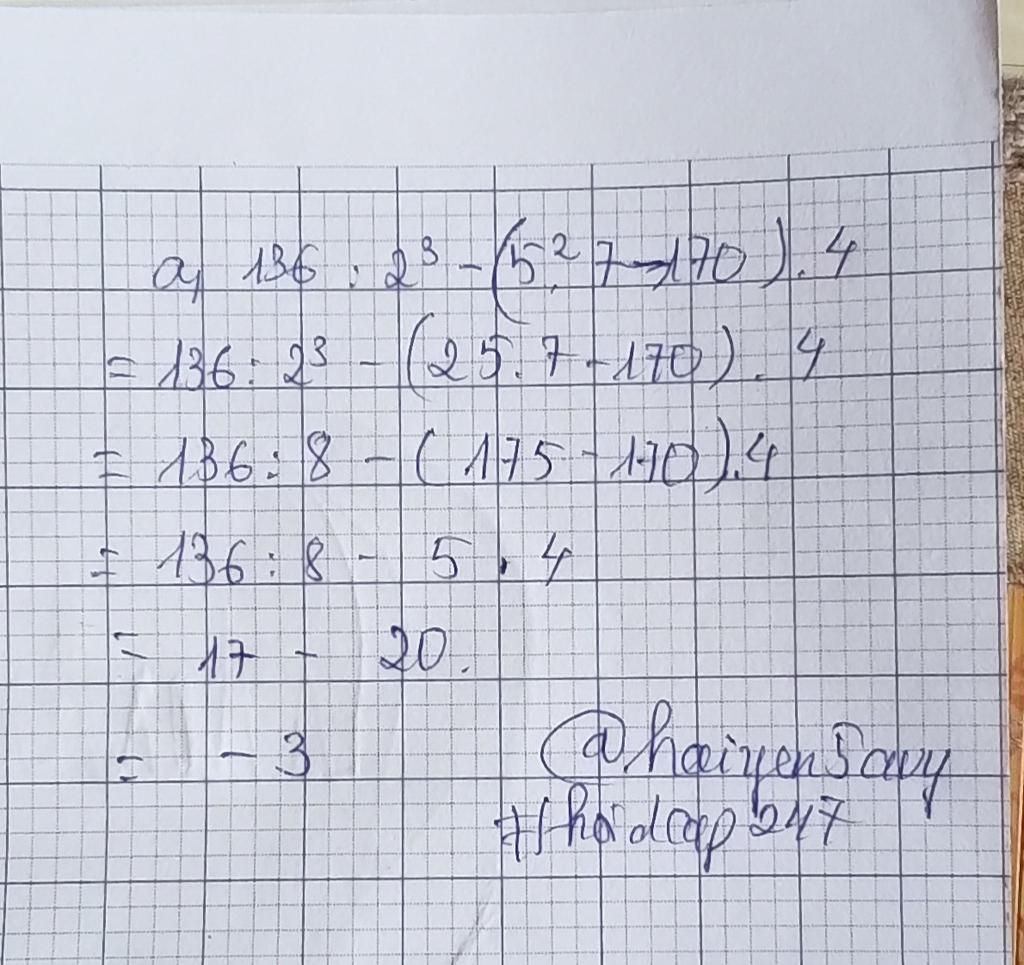 a, 136 : 2³ - (5².7 - 170).4
= 136 : 2³ - (25.7 - 170).4
= 136 : 8 - (175 - 170).4
= 136 : 8 - 5 . 4
= 17 - 20.
= - 3
@haiyen5avy
#hoidap247